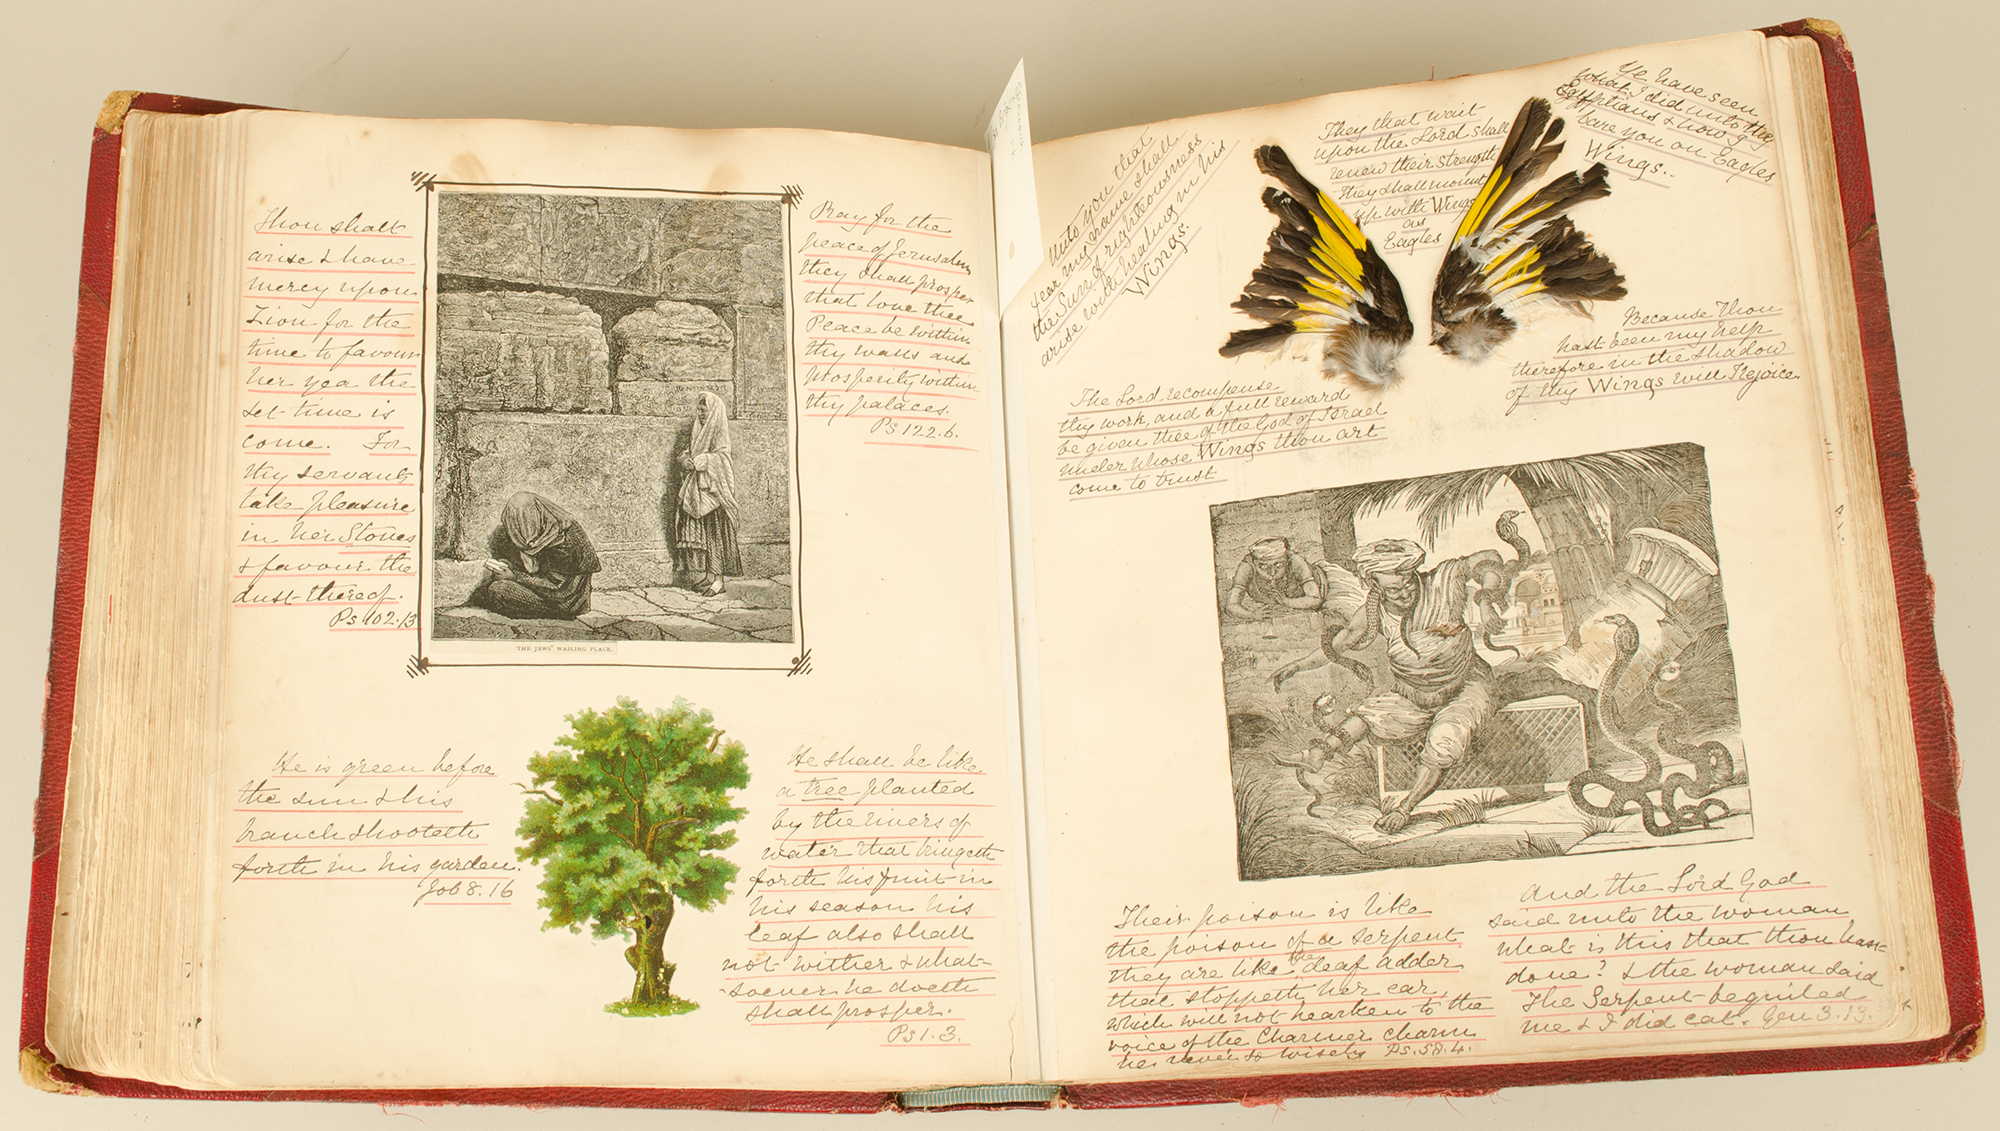 Thou shalt
arise & have
mercy upon
Zion for the
time to favour
her yea the
set time is
come. For
thy servants
take pleasure
in her Stones
& favour the
dust thereof.
Ps 102.13
THE JEWS' WAILING PLACE.
Pray for the
peace of Jerusalem
they shall prosper
that love thee
Peace be within
thy walls and
prosperity within
thy palaces.
Ps 122.6.
He is green before
the sun & his
branch shooteth
forth in his garden.
Job 8.16
He shall be like
a tree planted
by the rivers of
water that bringeth
forth his fruit in
his season his
leaf also shall
not wither & what-
soever he doeth
shall prosper.
Ps 1.3.
Unto you that
fear my name shall
the Sun of righteousness
arise with healing in his
Wings.
They that wait
upon the Lord shall
renew their strength
they shall mount
up with Wings
as
Eagles
Ye have seen
what I did unto the
Egyptians & how I
bare you on Eagles
Wings.
Because Thou
hast been my help
therefore in the shadow
of thy Wings will I rejoice
The Lord recompense
thy work, and a full reward
be given thee of the God of Israel
under whose Wings thou art
come to trust
Their poison is like
the poison of a serpent
they are like the deaf adder
that stoppeth her ear,
which will not hearken to the
voice of the Charmer charm
he never so wisely Ps. 58.4.
And the Lord God
said unto the woman
what is this that thou hast
done? & the woman said
The Serpent beguiled
me & I did eat. Gen 3.13.